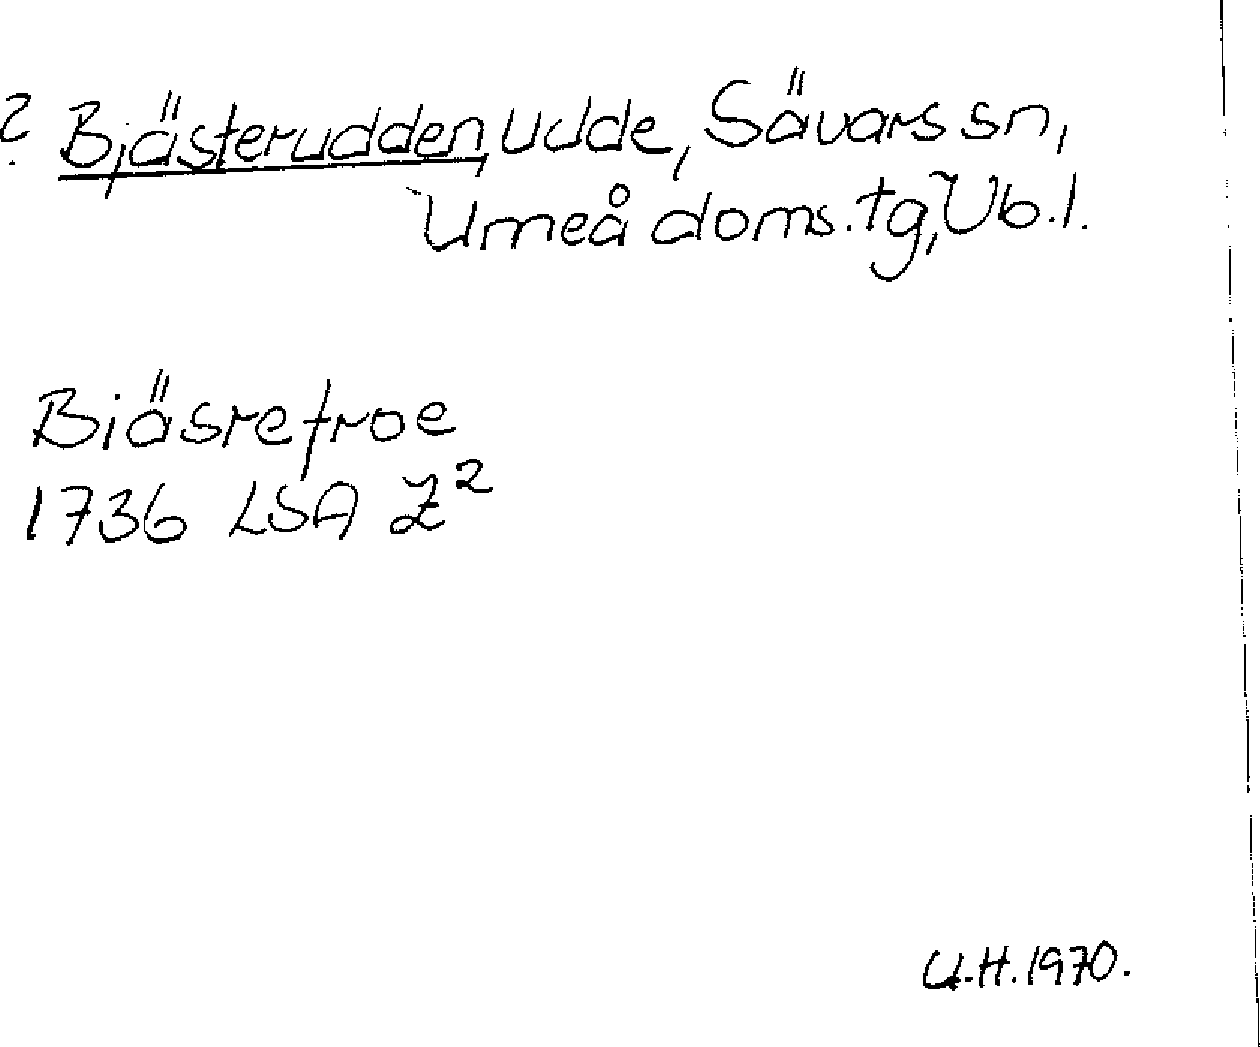 ? Bjästerudden, udde, Sävars sn,
Umeå doms. tg, Vb. l.
Biäsrefroe
1736 LSA Z²
U.H. 1970.